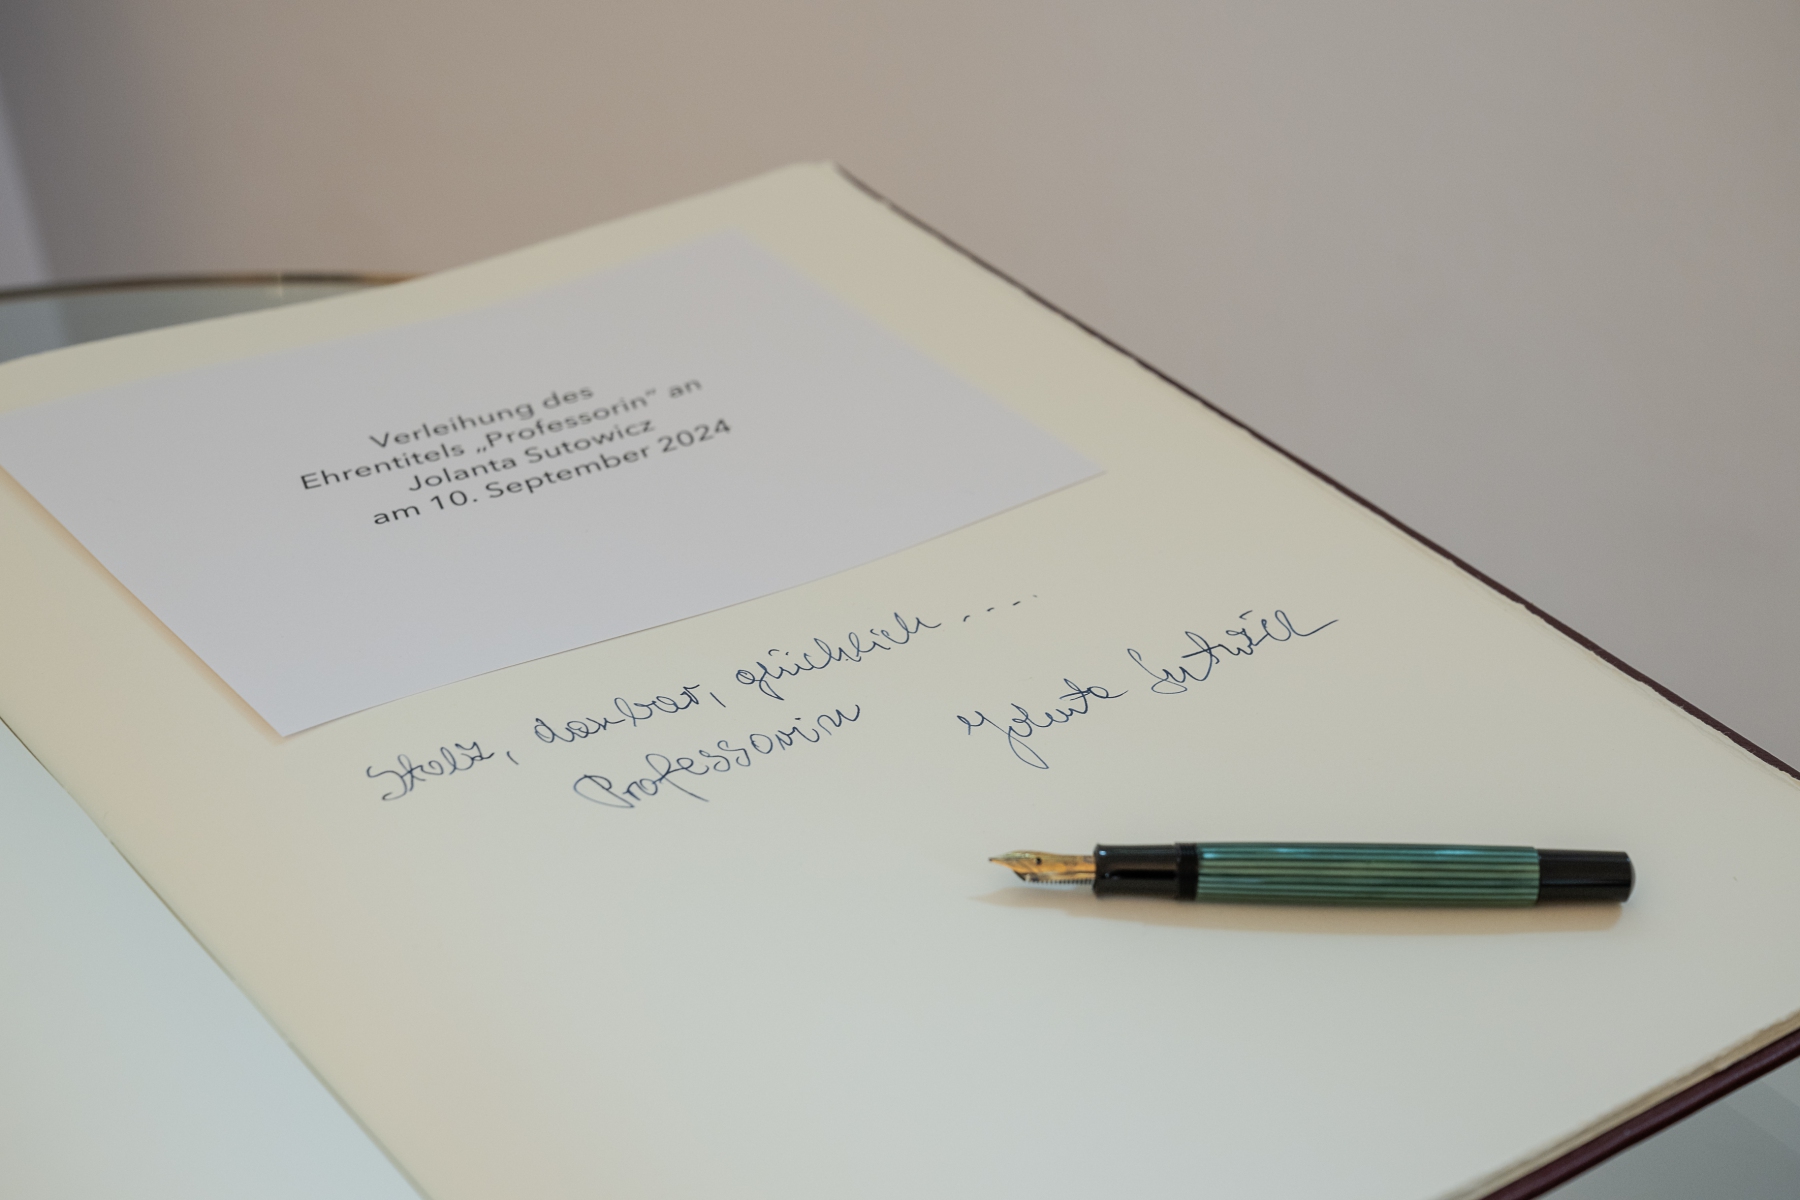 Verleihung des
Ehrentitels „Professorin“ an
Jolanta Sutowicz
am 10. September 2024
Stolz, dankbar, glücklich .....
Professorin
Jolanta Sutowicz